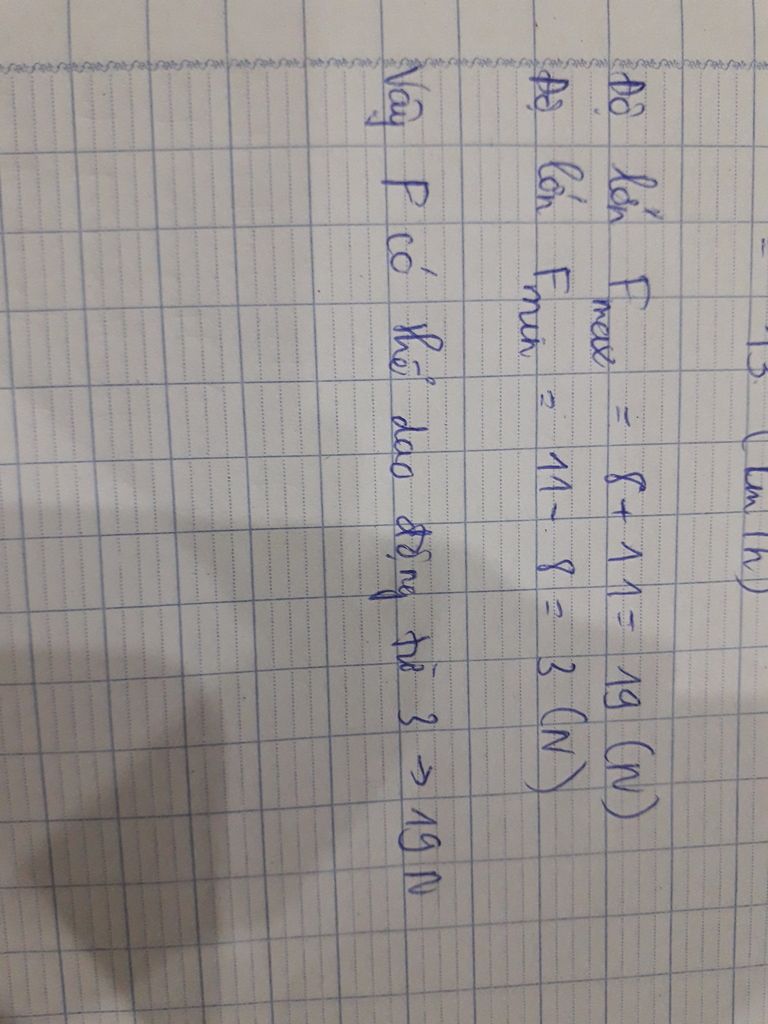 = 13 (km/h)
Độ lớn Fmax = 8 + 11 = 19 (N)
Độ lớn Fmin = 11 - 8 = 3 (N)
Vậy F có thể dao động từ 3 → 19 N